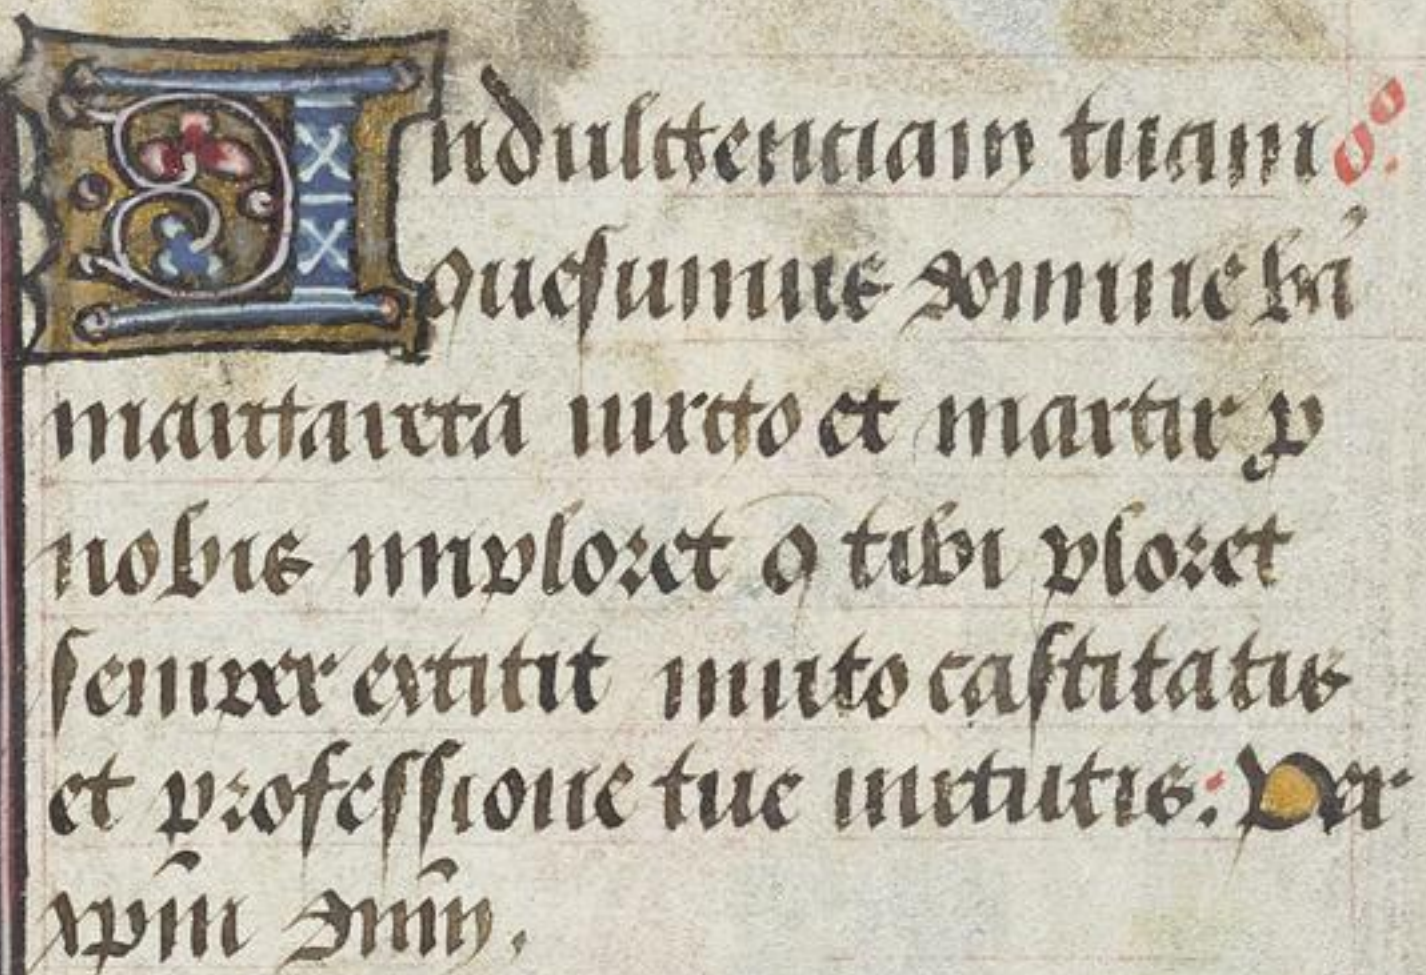 Indulgenciam tuam oº.
quesumus domine
margareta uirgo et martir p
nobis imploret q tibi ploret
semper extitit mito castitatis
et professione tue uirtutis: Per
xp̄m dn̄m.